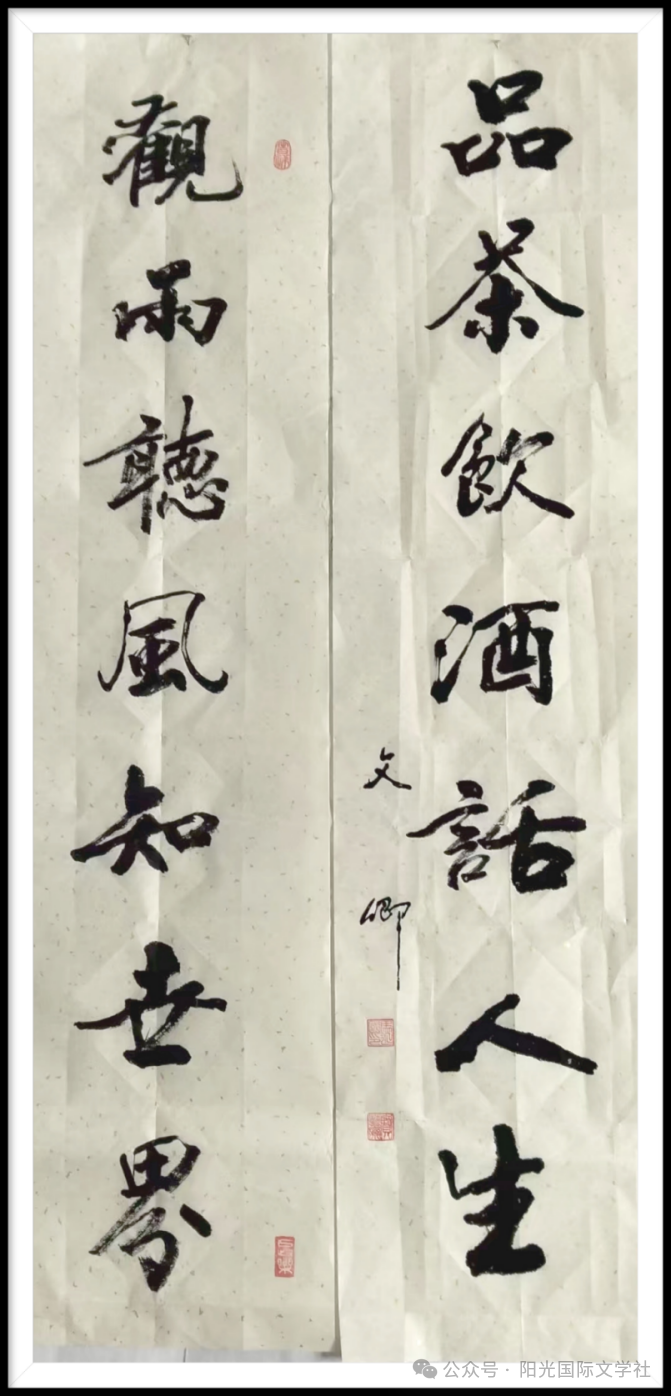 觀雨聴風知世界
品茶飲酒話人生
文卿
公众号 · 阳光国际文学社